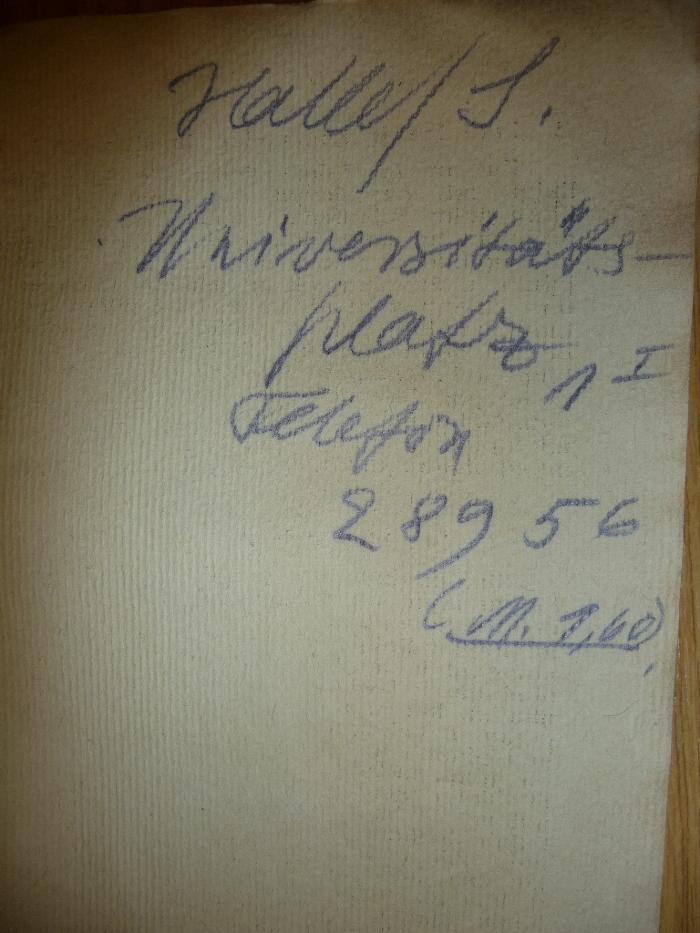 Halle/S.
Universitäts-
platz 1 I
Telefon
289 56
(M. 1,60)